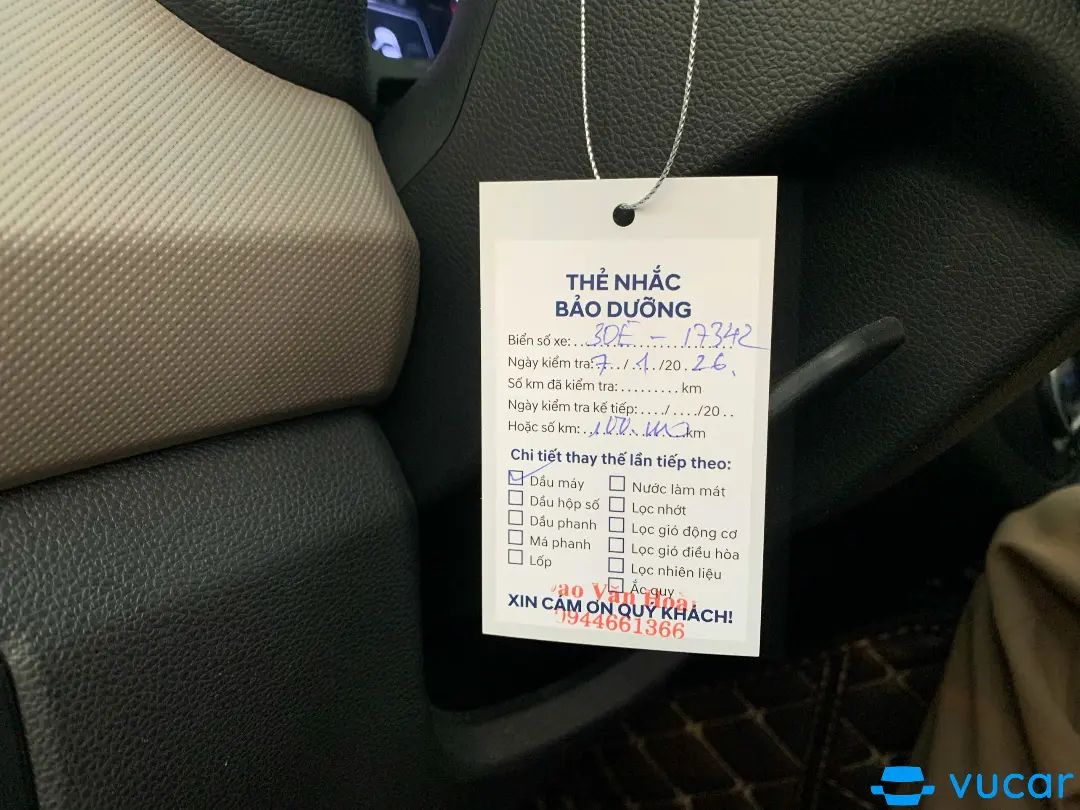 THẺ NHẮC
BẢO DƯỠNG
Biển số xe: 30E - 17342
Ngày kiểm tra: 7 / 1 /20 26.
Số km đã kiểm tra: ......... km
Ngày kiểm tra kế tiếp: ..../ ..../20 ..
Hoặc số km: 100.000 km
Chi tiết thay thế lần tiếp theo:
Dầu máy
Dầu hộp số
Dầu phanh
Má phanh
Lốp
Nước làm mát
Lọc nhớt
Lọc gió động cơ
Lọc gió điều hòa
Lọc nhiên liệu
Ắc quy
Văn Hoà
XIN CẢM ƠN QUÝ KHÁCH!
0944661366
vucar